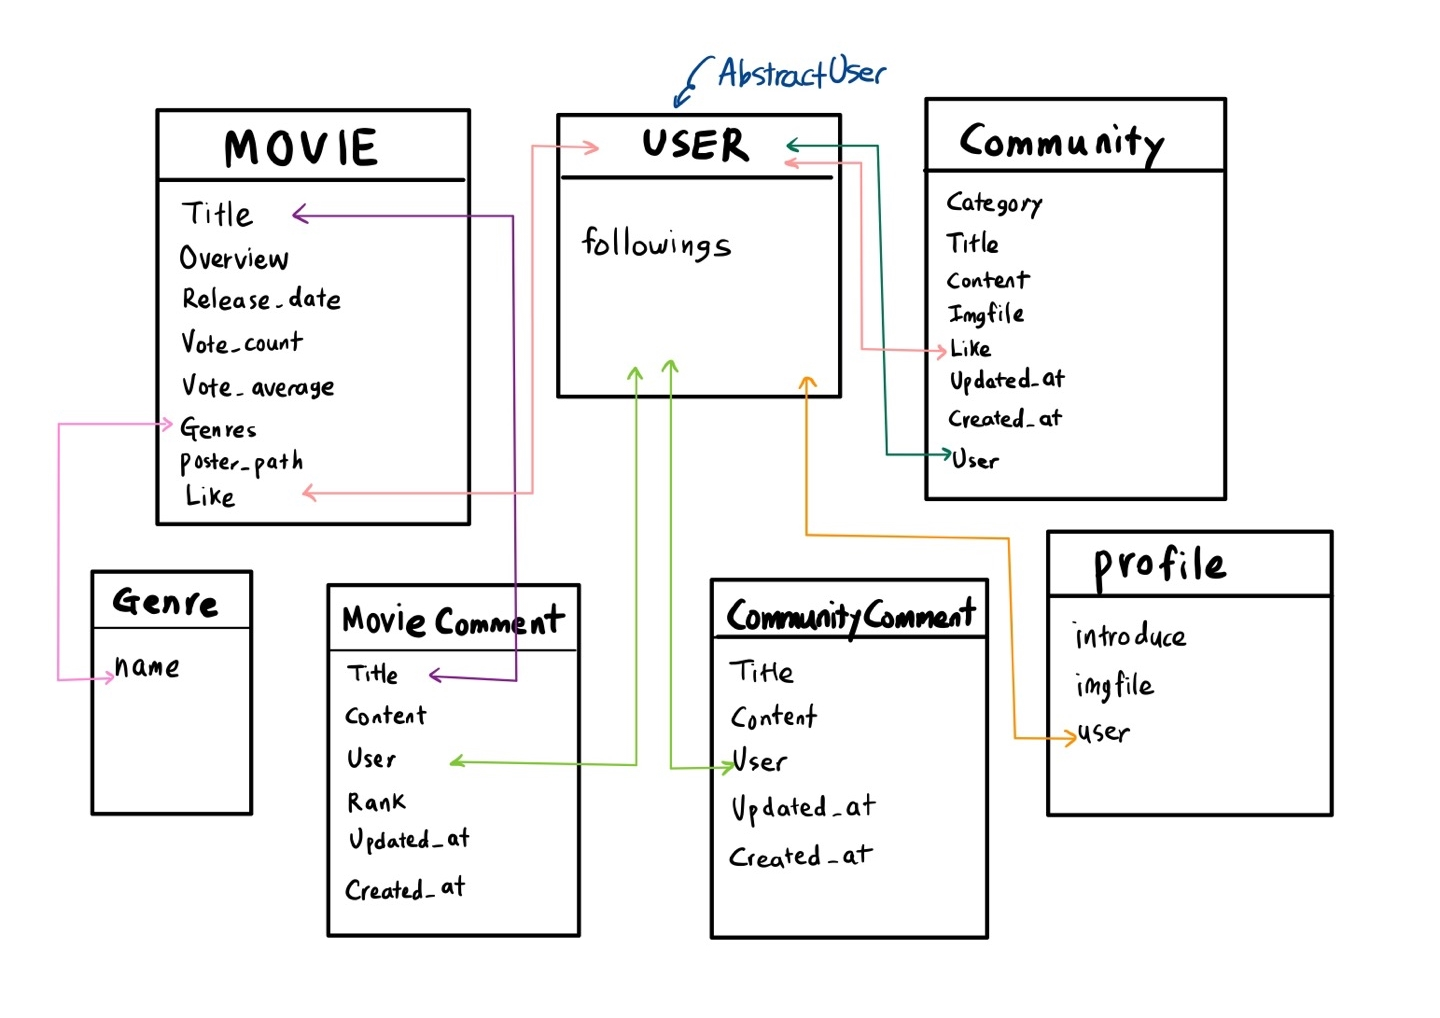 AbstractUser
MOVIE
Title
Overview
Release_date
Vote_count
Vote_average
Genres
Poster_path
Like
USER
followings
Community
Category
Title
Content
Imgfile
Like
Updated_at
Created_at
User
Genre
name
Movie Comment
Title
Content
User
Rank
Updated_at
Created_at
CommunityComment
Title
Content
User
Updated_at
Created_at
profile
introduce
imgfile
user